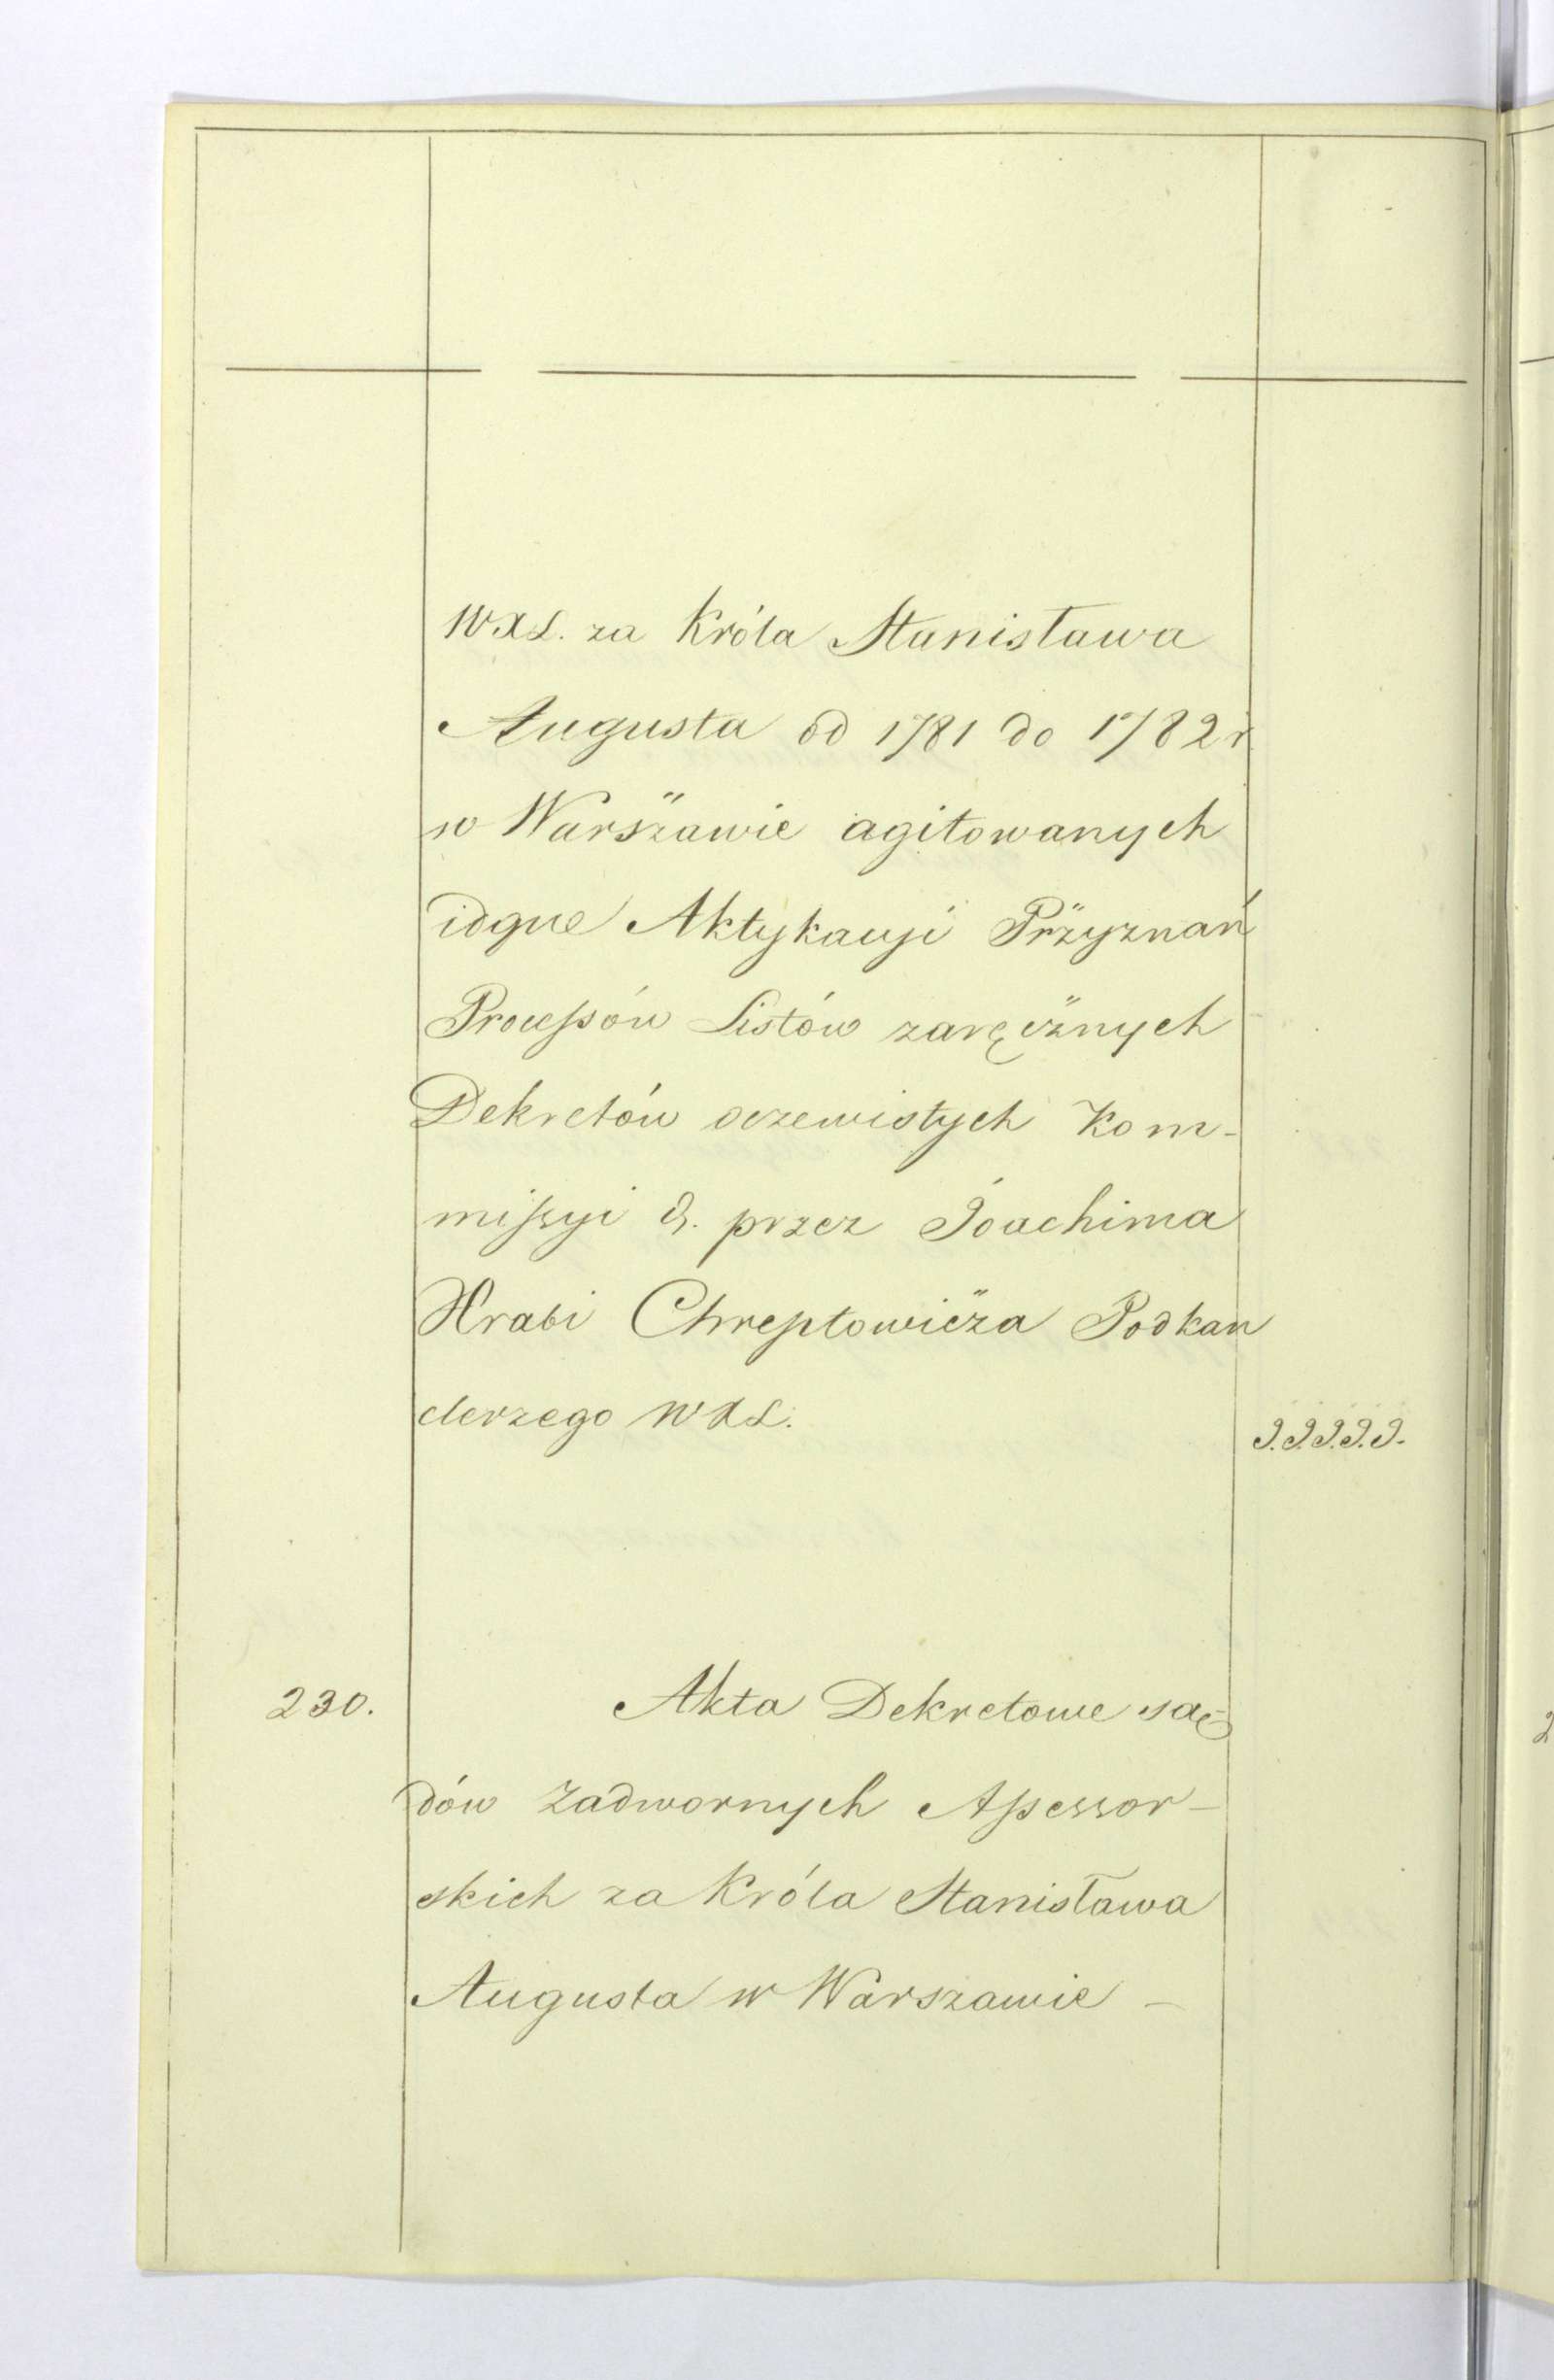 WXL. za Króla Stanisława
Augusta od 1781 do 1782 r
w Warszawie agitowanych
idque Aktykacyi Przyznań
Processów Listów zaręcznych
Dekretów oczewistych Kom-
missyi &. przez Joachima
Hrabi Chreptowicza Podkan
clerzego WXL.
J.J.J.J.J.
230.
Akta Dekretowe są-
dów Zadwornych Assessor-
skich za Króla Stanisława
Augusta w Warszawie -